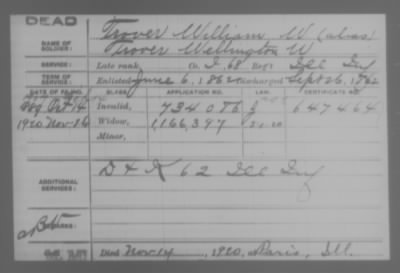 DEAD
Trover William W (alias)
NAME OF SOLDIER: Trover Wellington W
SERVICE: Late rank, Co. I, 68 Reg't Ill Inf
TERM OF SERVICE: Enlisted June 6, 1862 Discharged Sept 26, 1862
DATE OF FILING. CLASS. APPLICATION NO. LAW. CERTIFICATE NO.
Oct 14 Invalid, 734086 647464
1920 Nov 26 Widow, 1,166,397
Minor,
ADDITIONAL SERVICES: D & K 62 Ill Inf
REMARKS:
Died Nov 14, 1920, Paris, Ill.